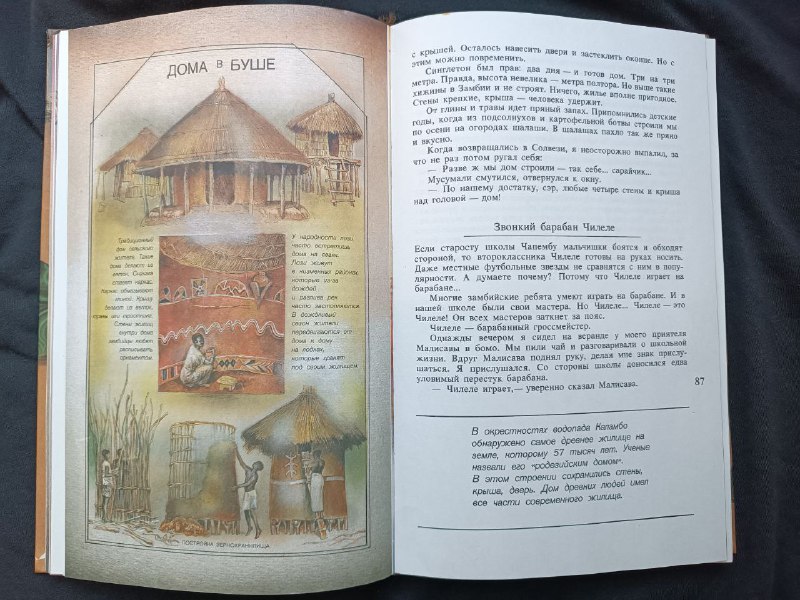 ДОМА в БУШЕ
Традиционный
дом сельских
жителей. Такие
дома делают из
глины. Сначала
ставят каркас,
каркас обмазывают
глиной. Крышу
делают из веток,
травы или тростника.
Стены жилищ
внутри дома
замбийцы любят
расписывать
орнаментом.
У народности лози
часто встретишь
дома на сваях.
Лози живут
в низменных районах,
которые из-за
дождей
и разлива рек
часто затопляются.
В дождливый
сезон жители
передвигаются от
дома к дому
на лодках,
которые хранят
под своим жилищем.
ПОСТРОЙКА ЗЕРНОХРАНИЛИЩА
с крышей. Осталось навесить двери и застеклить оконце. Но с
этим можно повременить.
Синглетон был прав: два дня — и готов дом. Три на три
метра. Правда, высота невелика — метра полтора. Но выше такие
хижины в Замбии и не строят. Ничего, жилье вполне пригодное.
Стены крепкие, крыша — человека удержит.
От глины и травы идет пряный запах. Припомнились детские
годы, когда из подсолнухов и картофельной ботвы строили мы
по осени на огородах шалаши. В шалашах пахло так же пряно
и вкусно.
Когда возвращались в Солвези, я неосторожно выпалил, за
что не раз потом ругал себя:
— Разве ж мы дом строили — так себе... сарайчик...
Мусумали смутился, отвернулся к окну.
— По нашему достатку, сэр, любые четыре стены и крыша
над головой — дом!
Звонкий барабан Чилеле
Если старосту школы Чапембу мальчишки боятся и обходят
стороной, то второклассника Чилеле готовы на руках носить.
Даже местные футбольные звезды не сравнятся с ним в попу-
лярности. А думаете почему? Потому что Чилеле играет на
барабане...
Многие замбийские ребята умеют играть на барабане. И в
нашей школе были свои мастера. Но Чилеле... Чилеле — это
Чилеле! Он всех мастеров заткнет за пояс.
Чилеле — барабанный гроссмейстер.
Однажды вечером я сидел на веранде у моего приятеля
Малисавы в бомо. Мы пили чай и разговаривали о школьной
жизни. Вдруг Малисава поднял руку, делая мне знак прислу-
шаться. Я прислушался. Со стороны школы доносился едва
уловимый перестук барабана.
— Чилеле играет,— уверенно сказал Малисава.
87
В окрестностях водопада Каламбо
обнаружено самое древнее жилище на
земле, которому 57 тысяч лет. Ученые
назвали его "родезийским домом".
В этом строении сохранились стены,
крыша, дверь. Дом древних людей имел
все части современного жилища.